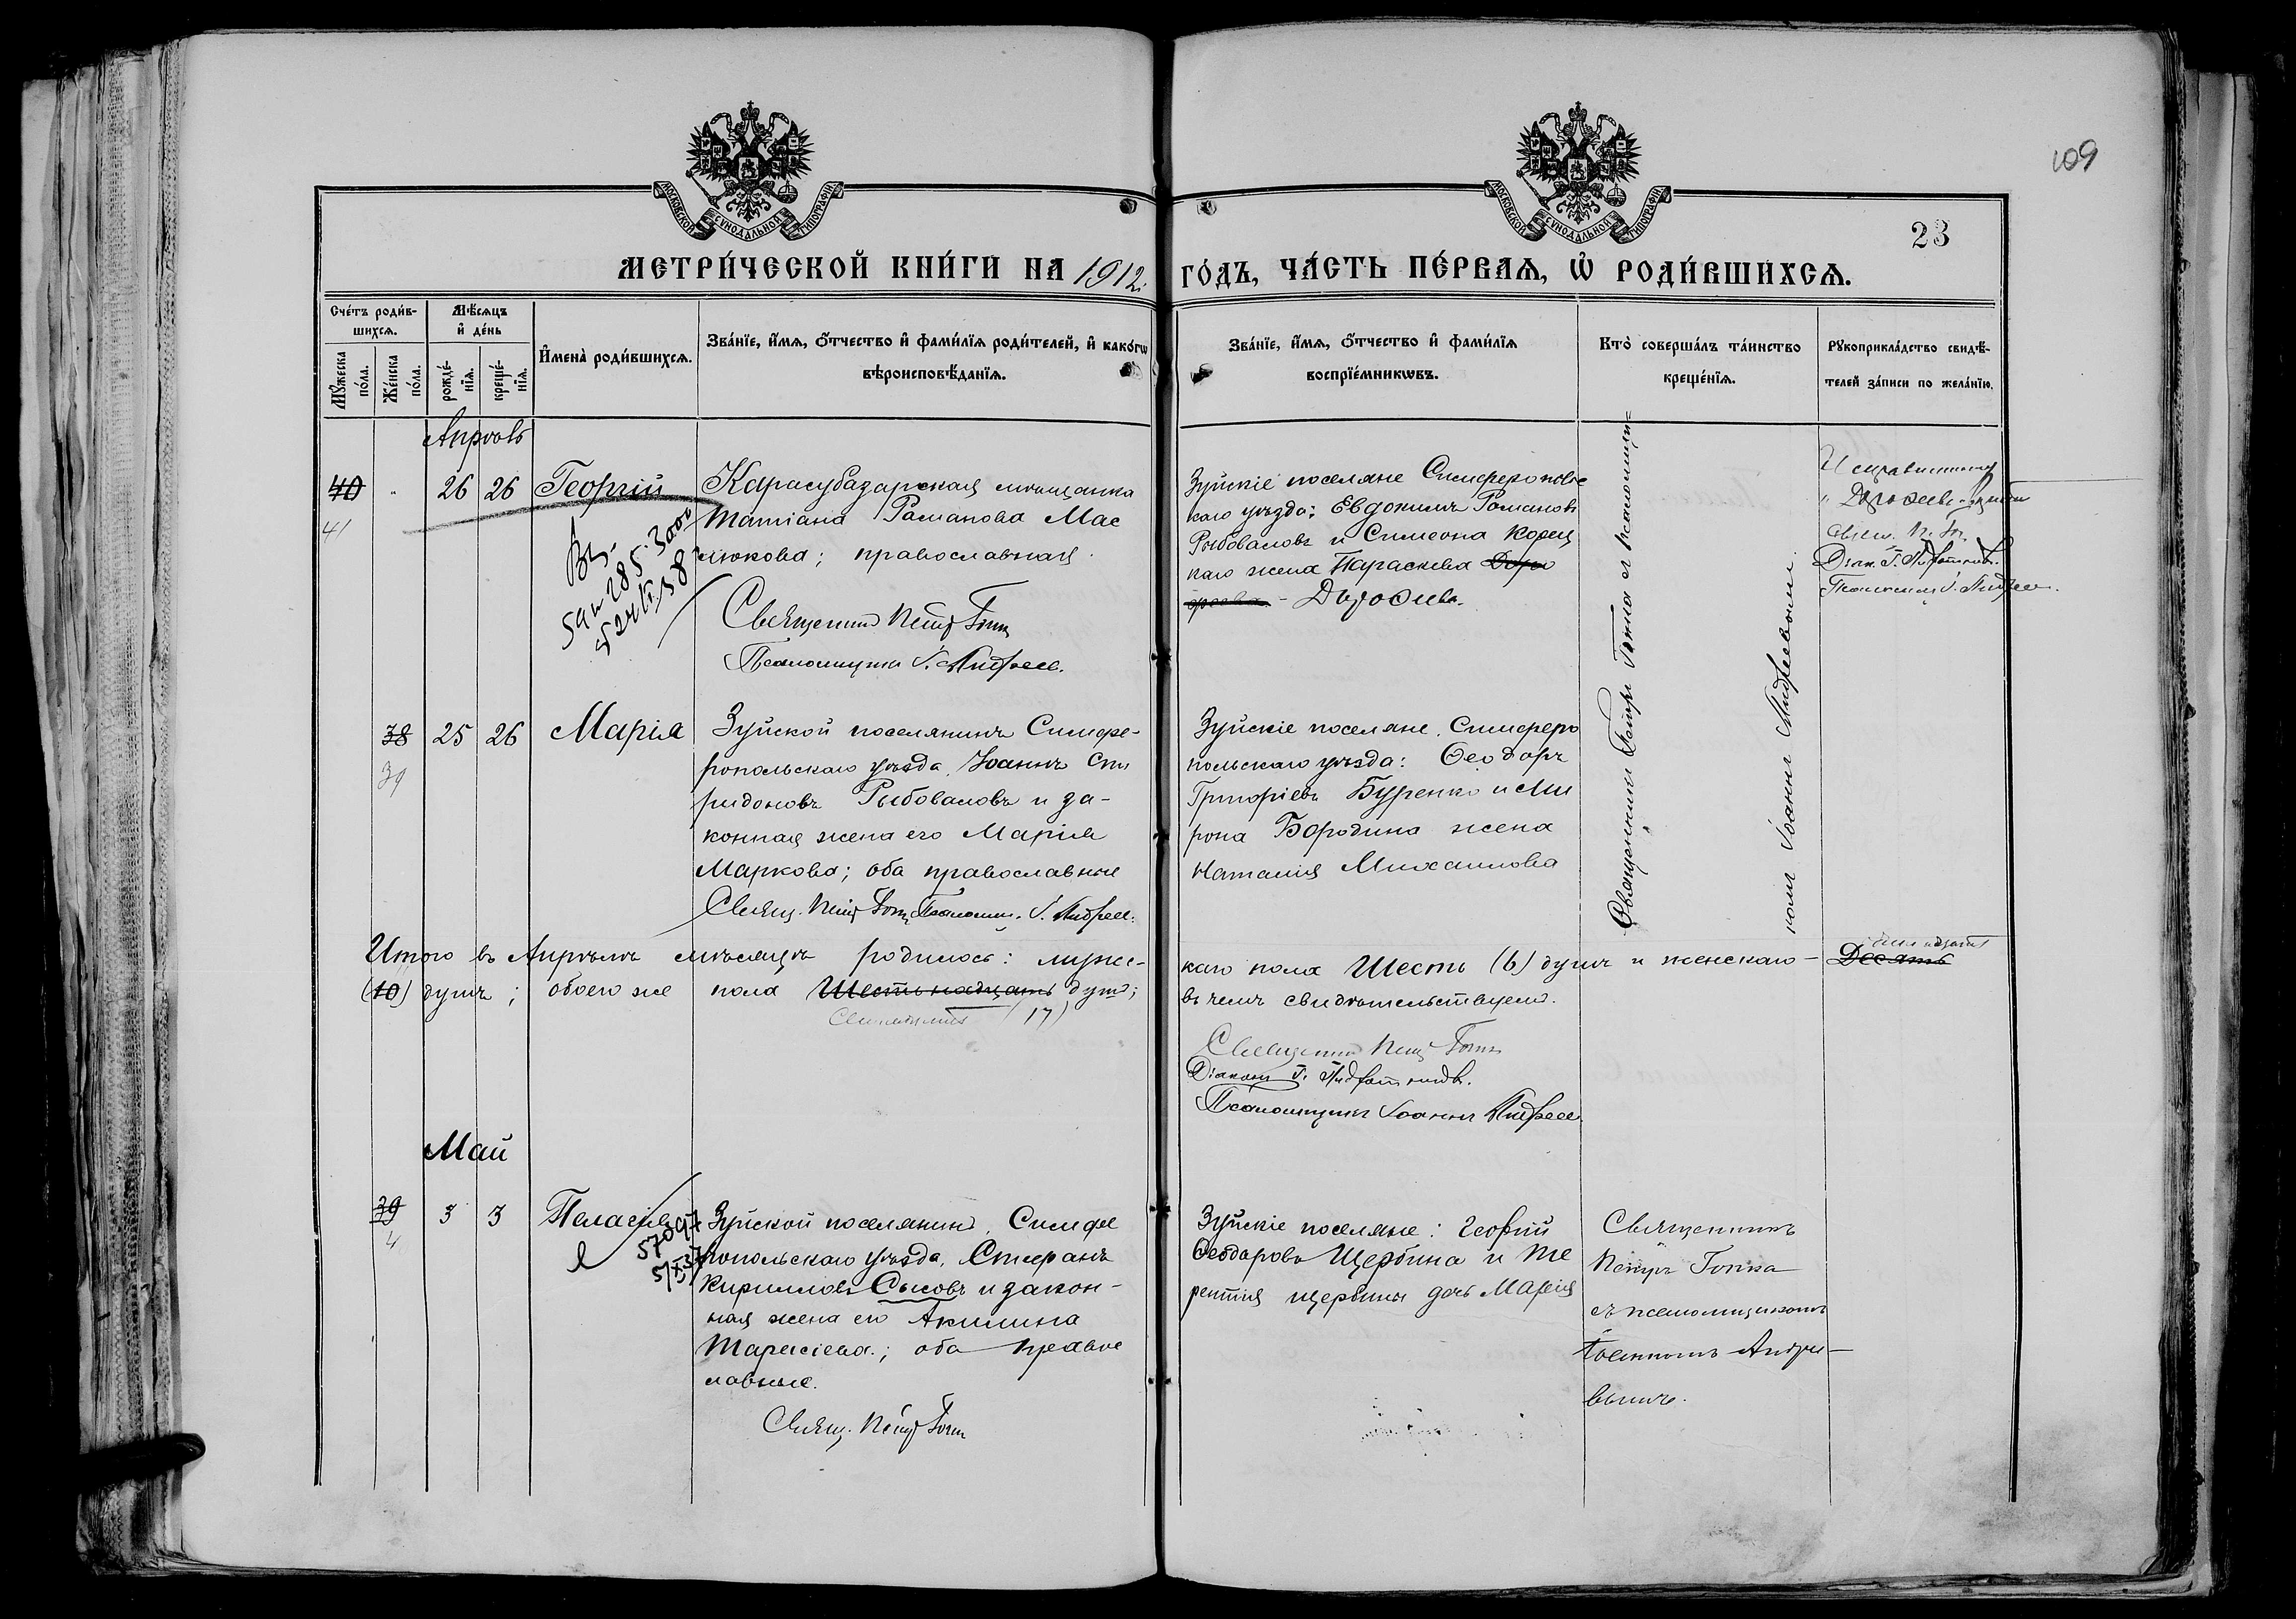 109
МОСКОВСКОЙ СУНОДАЛЬНОЙ ТИПОГРАФІИ
МОСКОВСКОЙ СУНОДАЛЬНОЙ ТИПОГРАФІИ
23
МЕТРИ́ЧЕСКОЙ КНИ́ГИ НА 1912 ГО́ДЪ, ЧА́СТЬ ПЕ́РВАЯ, Ѡ҆ РОДИ́ВШИХСЯ.
Сче́тъ роди́в-
шихся.
Мѣ́сяцъ
и҆ де́нь
Мꙋ́жеска по́ла.
Же́нска по́ла.
рожде́-
нїя.
креще́-
нїя.
И҆мена̀ роди́вшихся.
Зва́нїе, и҆́мя, ѻ҆́тчество и҆ фами́лїя роди́телей, и҆ како́гѡ
вѣроисповѣ́данїя.
Зва́нїе, и҆́мя, ѻ҆́тчество и҆ фами́лїя
воспрїе́мникѡвъ.
Кто̀ соверша́лъ та́инство
креще́нїя.
Рꙋкоприкла́дство свидѣ́-
телей за́писи по жела́нїю.
Апрѣль
40
41
26 26 Георгій
Карасубазарская мѣщанка
Татіана Романова Мас
люкова; православная.
Священникъ Петръ
Псаломщикъ І. Андреев.
Зуйскіе поселяне Симферополь
скаго уѣзда: Евдокимъ Романовъ
Рыбоваловъ и Симеона Корец
каго жена Параскева
Дороѳеева.
Священникъ Петръ Гопка съ псаломщи=
комъ Іоанномъ Андреевымъ.
38
39
25 26 Марія
Зуйской поселянинъ Симфе-
ропольскаго уѣзда, Іоаннъ Спи
ридоновъ Рыбоваловъ и за-
конная жена его Марія
Маркова; оба православные
Свящ. Петръ Псаломщ. І. Андреев.
Зуйскіе поселяне Симферо
польскаго уѣзда: Ѳеодоръ
Григоріевъ Буренко и Ми
рона Бородина жена
Наталія Михаилова
Итого въ Апрѣлѣ мѣсяцѣ родилось: мужес-
каго пола Шесть (6) душъ и женскаго -
Десять
(10) душъ; обоего же пола Шестнадцать душъ;
(17)
въ чемъ свидѣтельствуемъ.
Священникъ Петръ
Діаконъ
Псаломщикъ Іоаннъ Андреев
Май
39
4
3 3 Пелагія
57097
5/XI 37
Зуйской поселянинъ, Симфе
ропольскаго уѣзда, Стефанъ
Кирилловъ Сысовъ и закон-
ная жена его Акилина
Тарасіева; оба правос
лавные.
Свящ. Петръ
Зуйскіе поселяне: Георгій
Ѳеодоровъ Щербина и Те
рентія Щербины дочь Марія
Священникъ
Петръ Гопка
съ псаломщикомъ
Іоанномъ Андре-
евымъ.